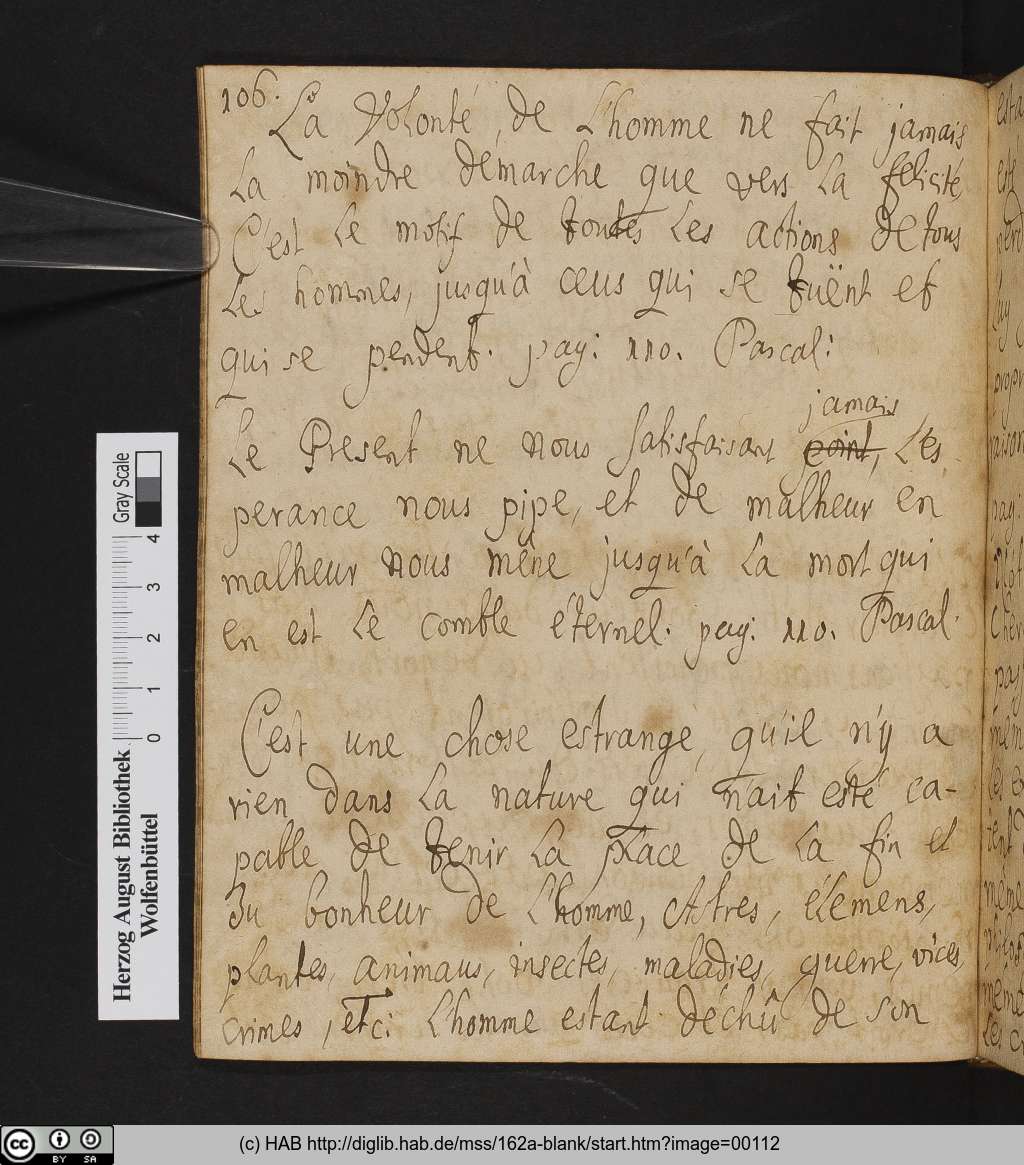 106.
La Volonté, de L'homme ne fait jamais
La moindre démarche que vers La felicité,
C'est Le motif de toutes Les actions de tous
Les hommes, jusqu'à ceus qui se tuënt et
qui se pendent. pag: 110. Pascal:
jamais
Le Present ne nous satisfaisant point, L'es,
perance nous pipe, et de malheur en
malheur nous mène jusqu'à La mort qui
en est Le comble éternel. pag: 110. Pascal.
C'est une chose estrange, qu'il n'y a
rien dans La nature qui n'ait esté ca-
pable de tenir La place de La fin et
Du bonheur de L'homme, Astres, élemens,
plantes, animaus, insectes, maladies, guerre, vices,
crimes, etc: L'homme estant déchû de son
Gray Scale
0 1 2 3 4
Herzog August Bibliothek
Wolfenbüttel
cc BY SA
(c) HAB http://diglib.hab.de/mss/162a-blank/start.htm?image=00112